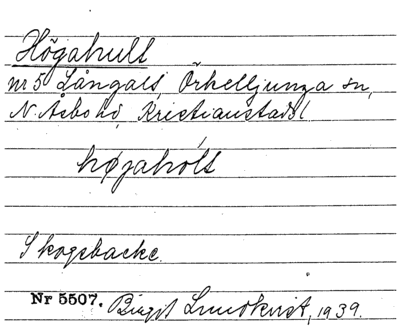 Högahult
nr 5 Långalt, Örkelljunga sn,
N. Åsbo hd, Kristianstads l
høgahólt
Skogsbacke.
Nr 5507. Birgit Lundkvist, 1939.